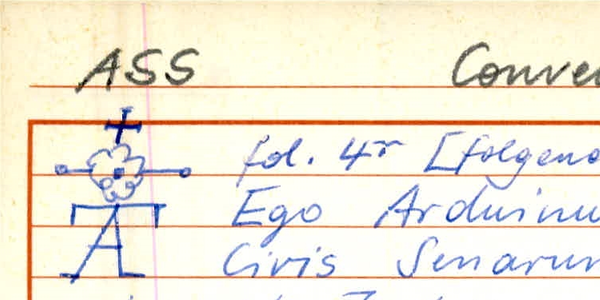 ASS Conve
fol. 4r [folgend
Ego Arduinu
A Civis Senarum